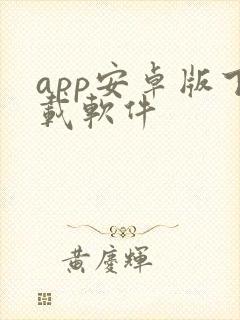 app安卓版下
載軟件
黃慶輝